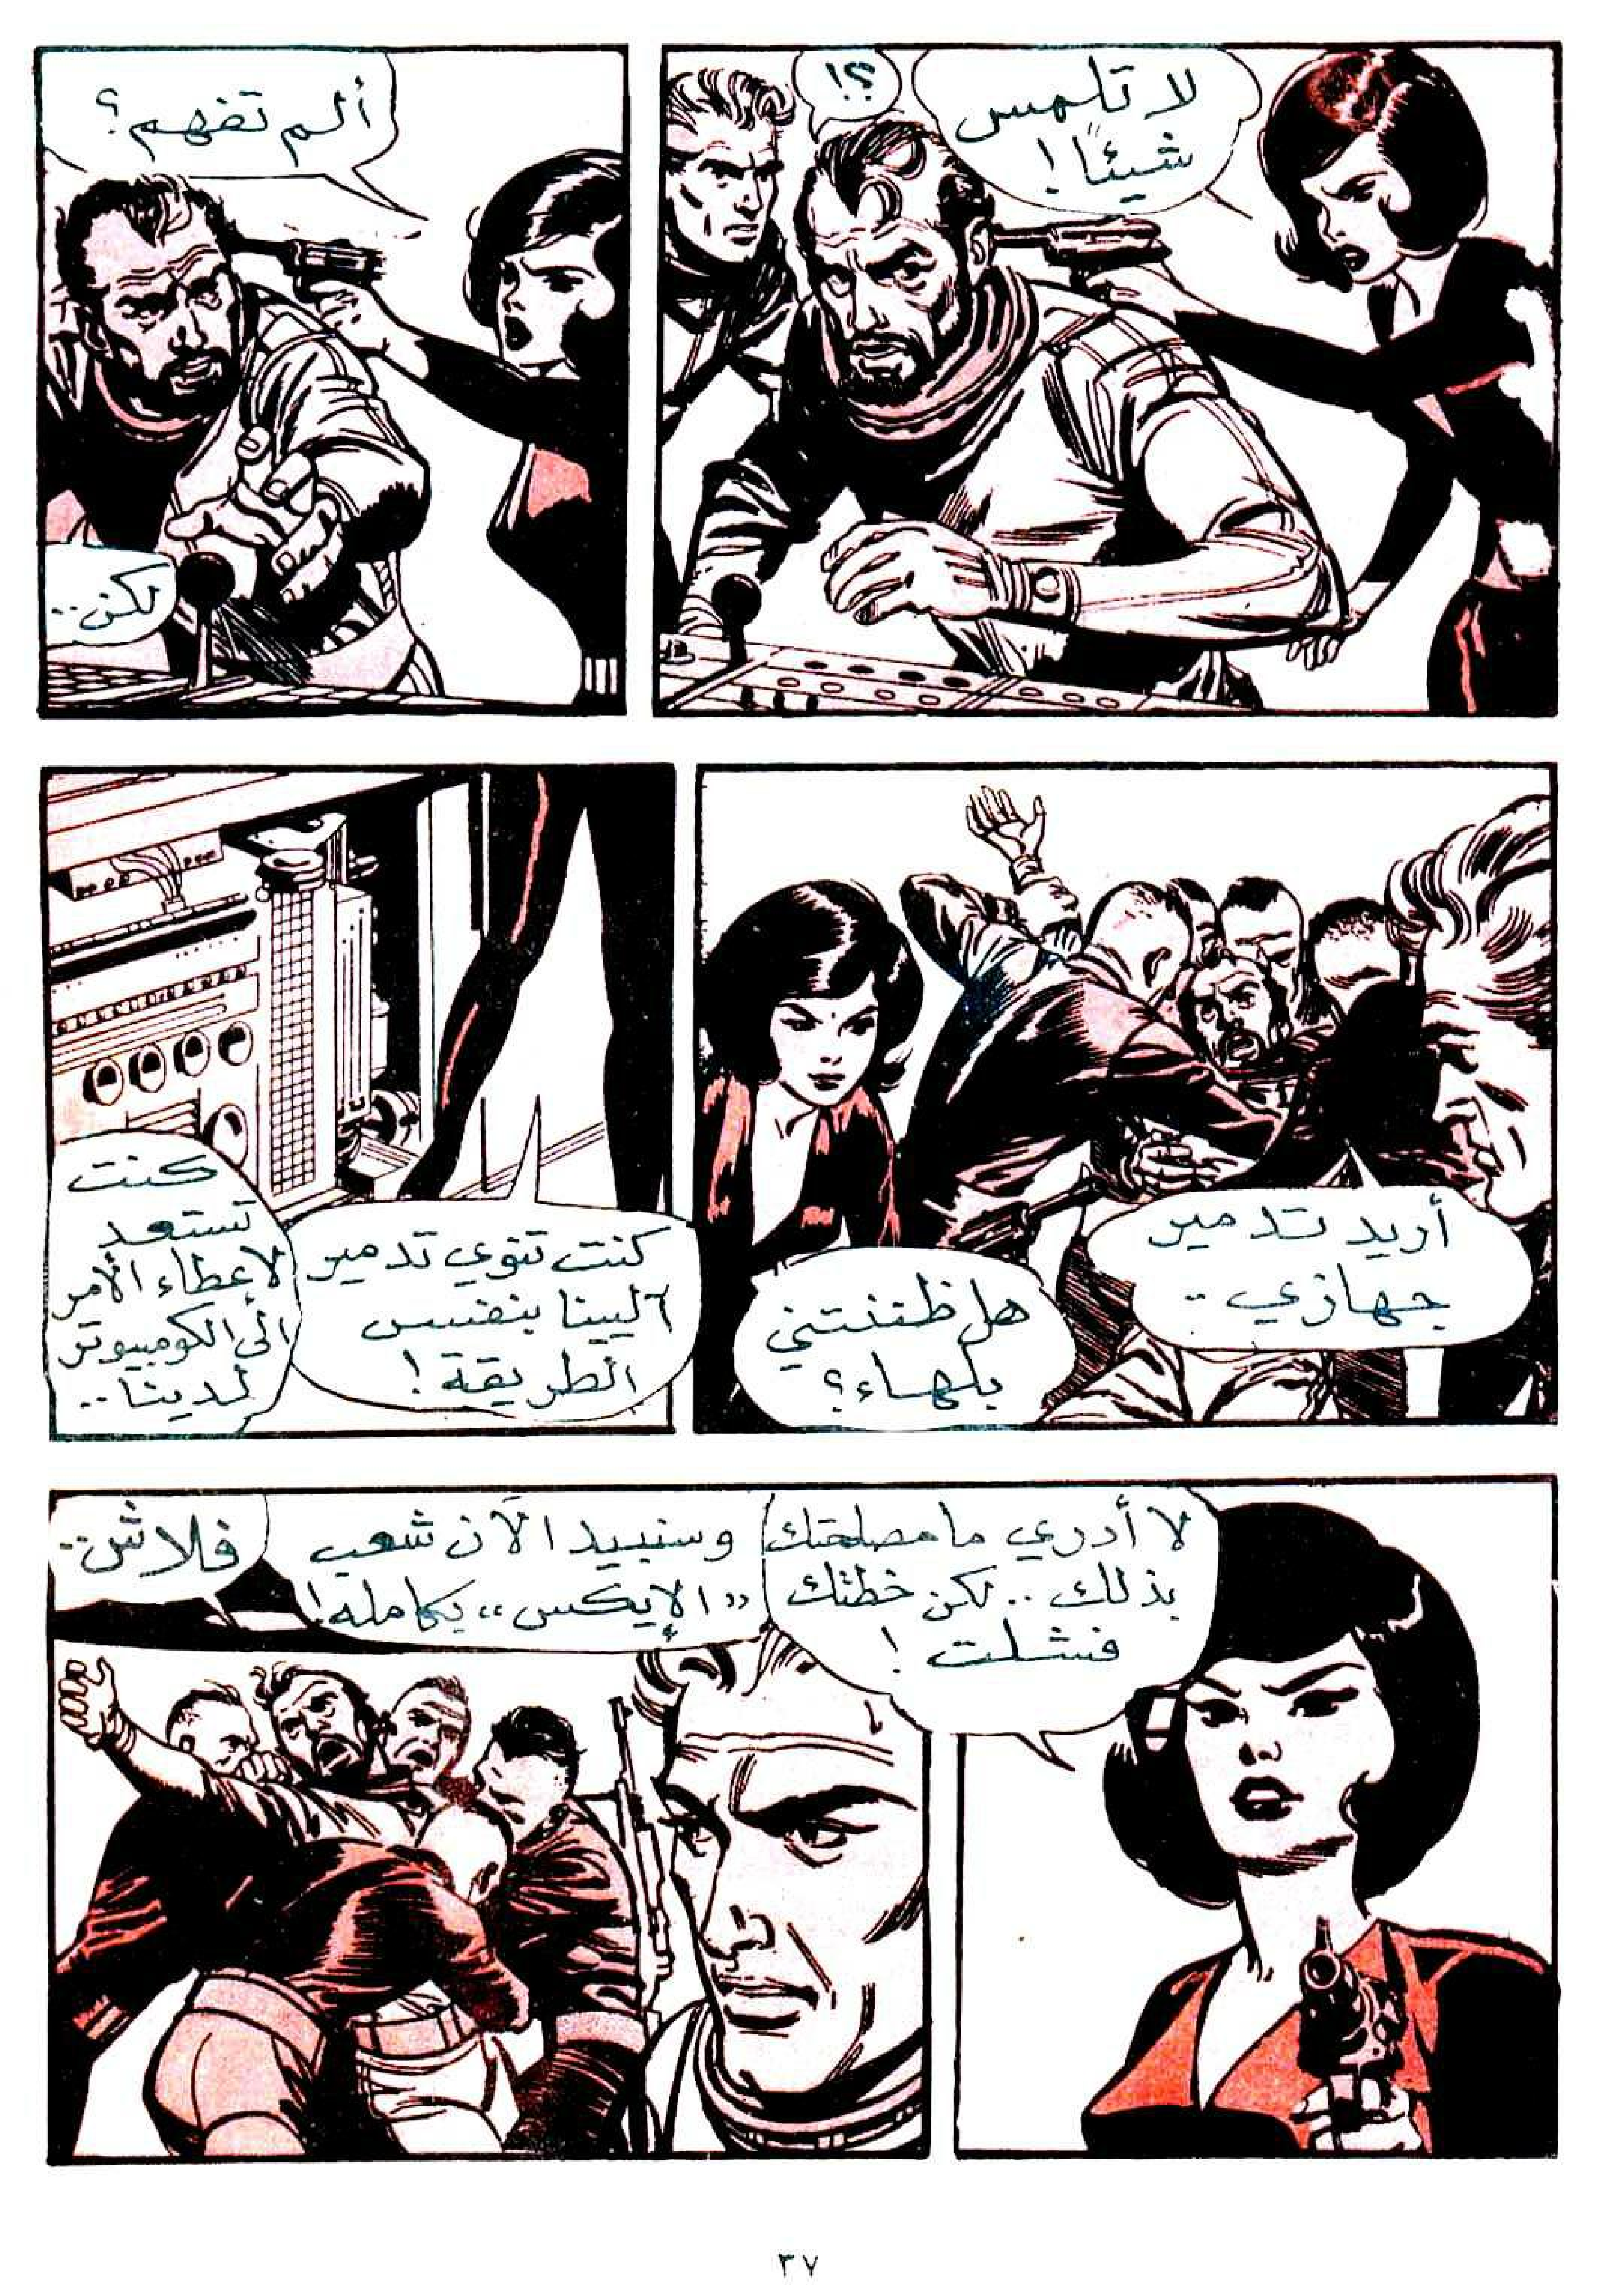 لا تلمس
شيئاً!
؟!
ألم تفهم؟
لكن..
أريد تدمير
جهازي..
هل ظننتني
بلهاء؟
كنت تنوي تدمير
آليينا بنفس
الطريقة!
كنت
تستعد
لإعطاء الأمر
إلى الكومبيوتر
لدينا..
لا أدري ما مصلحتك
بذلك.. لكن خطتك
فشلت!
وسنبيد الآن شعب
"الإيكس" بكامله!
فلاش..
٣٧